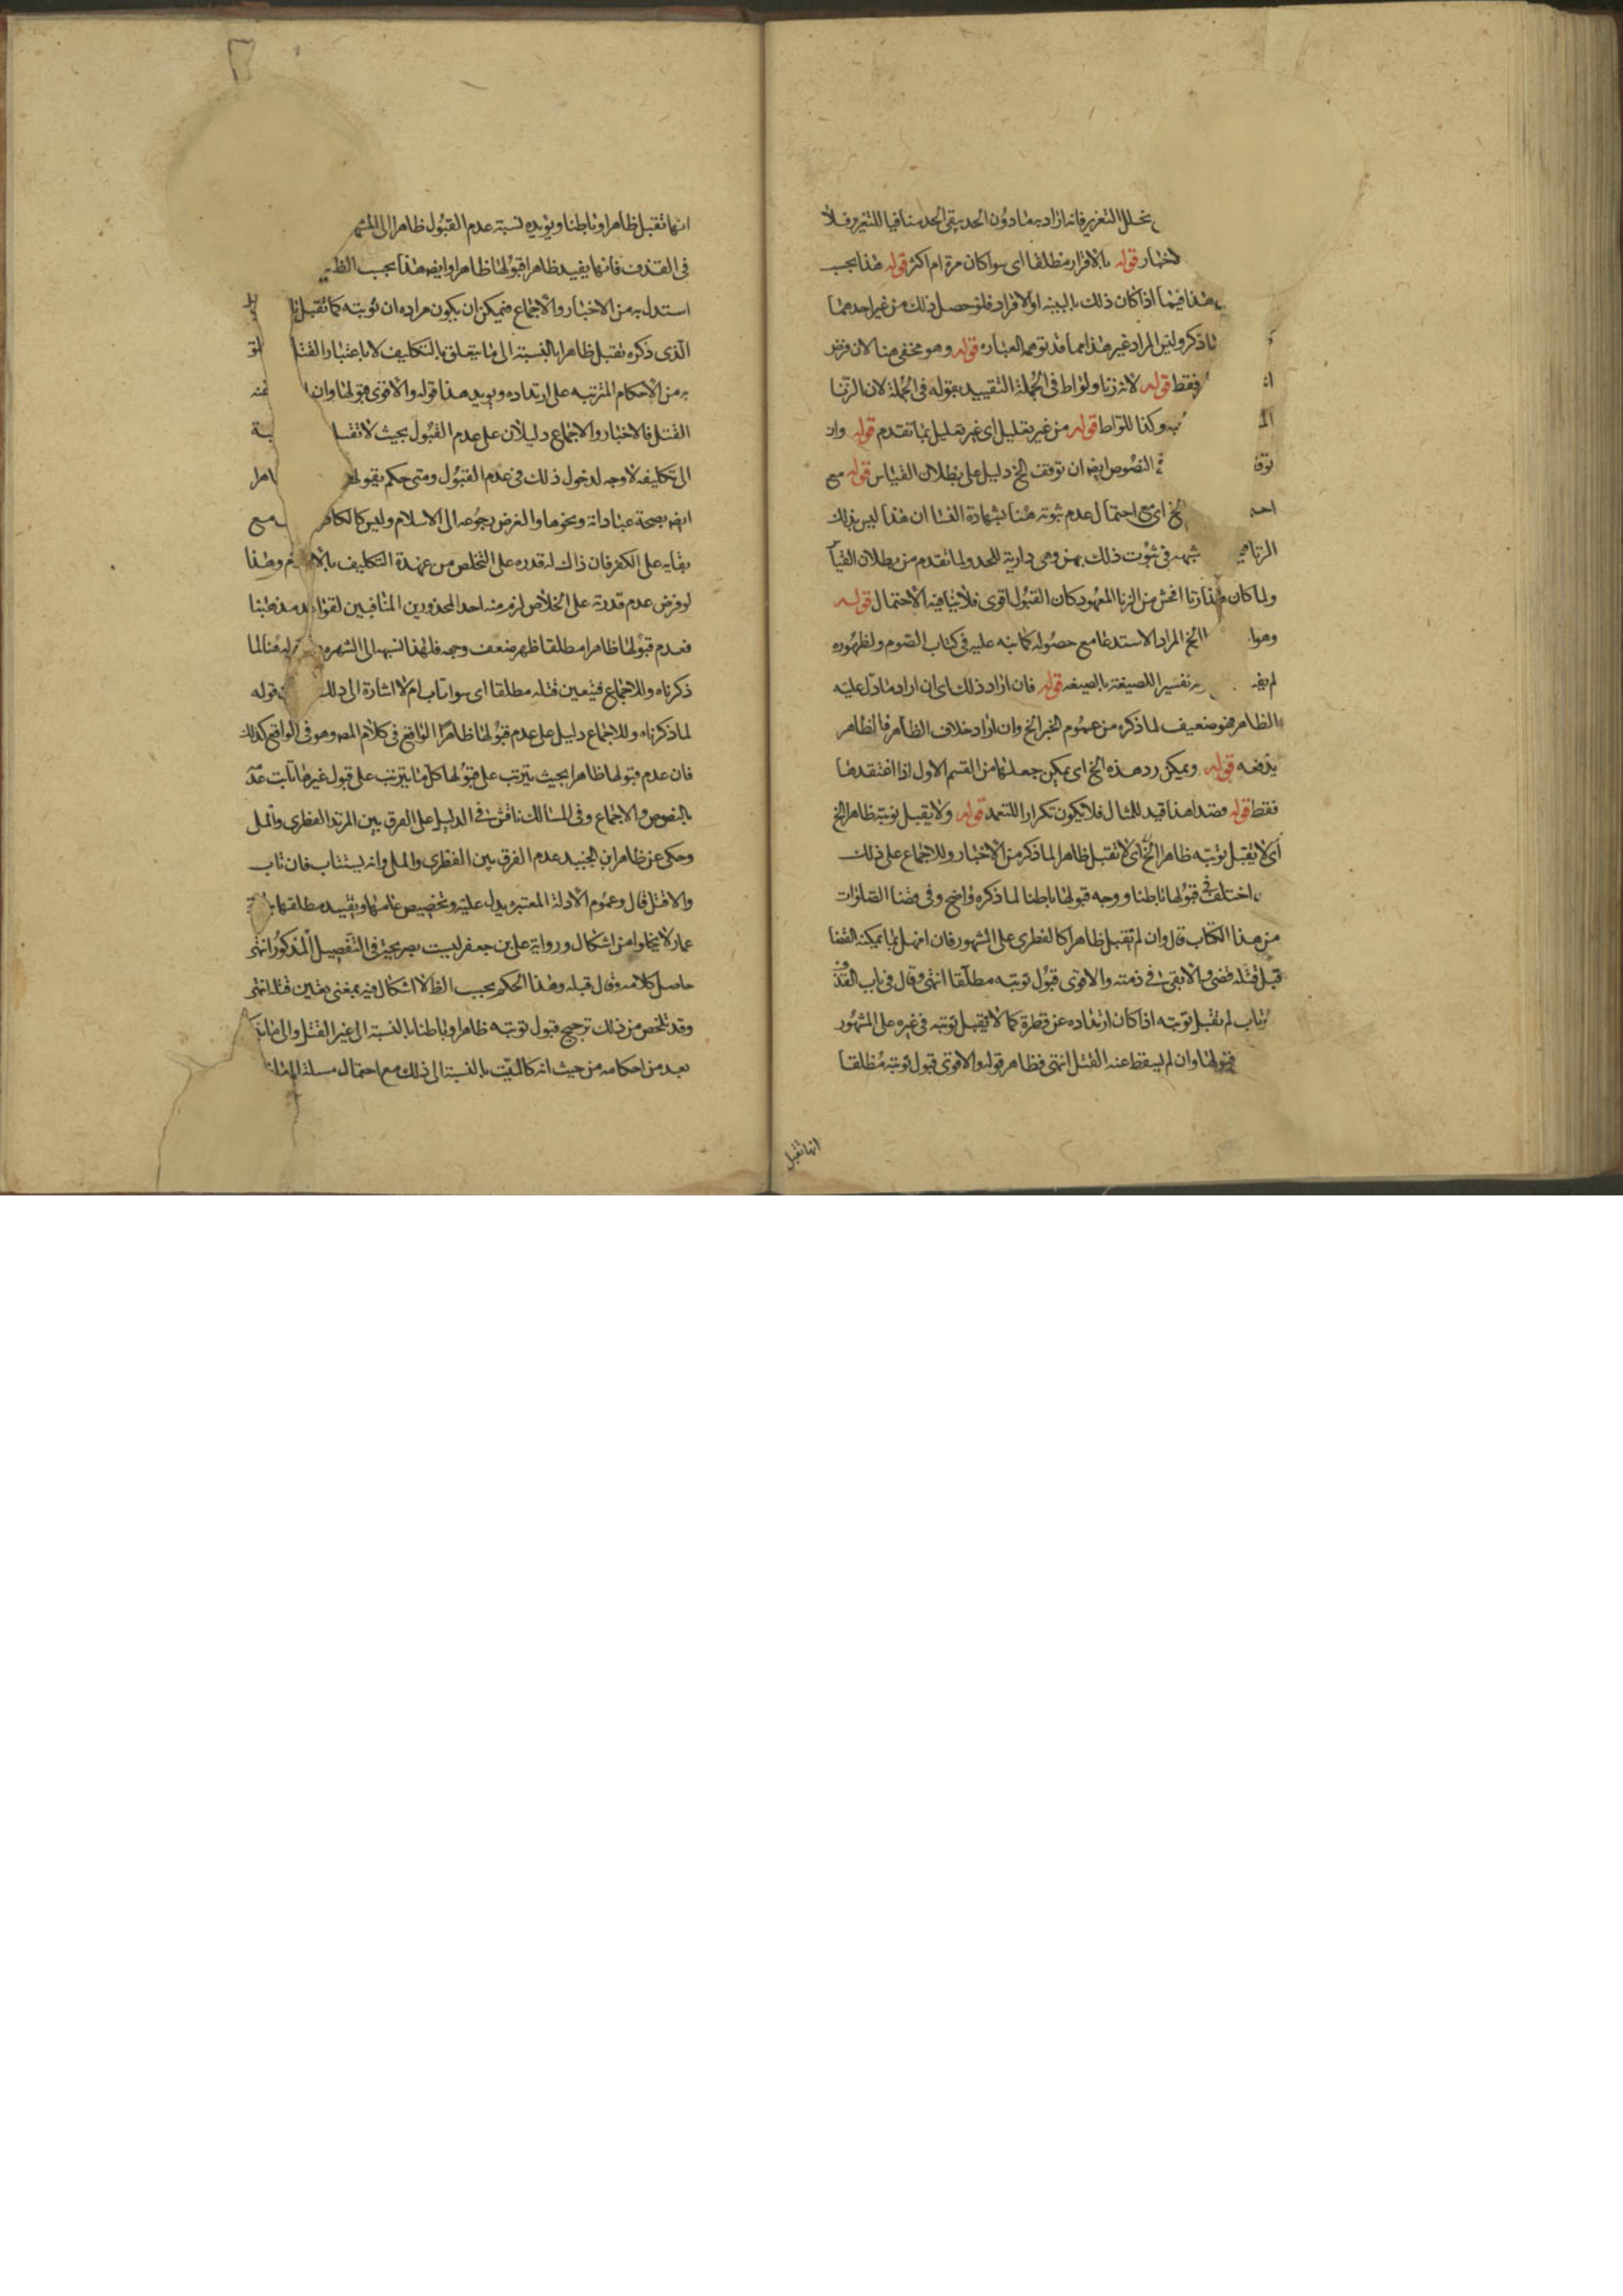 تخلل التعزير فانه اراد به مادون الحد يبقى الحد منافيا للتعزير فلا
لاخبار قوله بالاقرار مطلقا اى سواكان مرة ام اكثر قوله هذا بحسب
هذا فيما اذا كان ذلك بالبينه او الاقرار فلو حصل ذلك من غير احدهما
ماذكر وليس المراد غير هذا مما قد توهمه العباره قوله وهو مخفى هنا لان فرض
فقط قوله لانه زنا ولواط فى الجملة التقييد بقوله فى الجملة لان الزنا
وكذا اللواط قوله من غير تعليل اى غير تعليل بما تقدم قوله وان
توقف النصوص ايضا ان توقف الخ دليل على بطلان القياس قوله مع
الخ اى مع احتمال عدم ثبوته هنا بشهادة النسا ان هذا ليس بذلك
الزنا شبهه فى ثبوت ذلك بهن وهى دارية للحد ولما تقدم من بطلان القياس
ولما كان هذا زنا افحش من الزنا المعهود كان القبول اقوى فلا ينافيه الاحتمال قوله
وهو الخ المراد الاستدعا مع حصوله كما نبه عليه فى كتاب الصوم ولظهوره
لم تفسيرا للصيغة بالصيغه قوله فان اراد ذلك اى ان اراد ما دل عليه
الظاهر فهو ضعيف لما ذكره من عموم الخبر الخ وان اراد خلاف الظاهر فالظاهر
يدفعه قوله ويمكن رد هذه الخ اى يمكن جعلها من القسم الاول اذا اعتقدها
فقط قوله فصدا هذا قيد للمثال فلا يكون تكرارا للتعمد قوله ولا يقبل توبته ظاهرا الخ
اى لا يقبل توبته ظاهرا الخ اى لا تقبل ظاهرا لما ذكر من الاخبار وللاجماع على ذلك
اختلف فى قبولها باطنا ووجه قبولها باطنا لما ذكره واضح وفى قضا الصلوات
من هذا الكتاب قال وان لم تقبل ظاهرا كالفطرى على المشهور فان امهل بما يمكنه القضا
قبل قتله قضى والا بقى فى ذمته والاقوى قبول توبته مطلقا انتهى وقال فى باب القذف
تاب لم تقبل توبته اذا كان ارتداده عن فطرة كما لا تقبل توبته فى غيره على المشهور
قبولها وان لم يسقط عنه القتل انتهى فظاهر قوله والاقوى قبول توبته مطلقا
انها تقبل
انها تقبل ظاهرا وباطنا ويؤيده نسبة عدم القبول ظاهرا الى المشهور
فى القذف فانها يفيد ظاهرا قبولها ظاهرا وايضا هذا بحسب الظ
استدل به من الاخبار والاجماع فيمكن ان يكون مراده ان توبته كما تقبل
الذى ذكره تقبل ظاهرا بالنسبة الى ما يتعلق بالتكاليف لا باعتبار القتل
به من الاحكام المترتبه على ارتداده ويؤيد هذا قوله والاقوى قبولها وان عنه
القتل فالاخبار والاجماع دليلان على عدم القبول بحيث لا تقبل
الى تكليفه لا وجه لدخول ذلك فى عدم القبول ومتى حكم بقبولها
ايضا بصحة عباداته ونحوها والغرض رجوعه الى الاسلام وليس كالكافر مع
بقايه على الكفر فان ذاك له قدره على التخلص من عهدة التكاليف وهذا
لو فرض عدم قدرته على الخلاص لزم منه احد المحذورين المنافيين لقواعد مذهبنا
فعدم قبولها ظاهرا مطلقا ظهر ضعف وجهه فلهذا نسبه الى الشهره هنا لما
ذكرناه وللاجماع فيتعين قتله مطلقا اى سوا تاب ام لا اشارة الى ذلك قوله
لما ذكرناه وللاجماع دليل على عدم قبولها ظاهرا الواقع فى كلام المص وهو فى الواقع كذلك
فان عدم قبولها ظاهرا بحيث يترتب على قبولها كل ما يترتب على قبول غيرها ثابت عند
بالنصوص والاجماع وفى المسالك ناقش فى الدليل على الفرق بين المرتد الفطرى والملى
وحكى عن ظاهر ابن الجنيد عدم الفرق بين الفطرى والملى وانه يستتاب فان تاب
والا قتل قال وعموم الادلة المعتبره يدل عليه وتخصيص عامها وتقييد مطلقها
عمار لا يخلوا من اشكال ورواية على بن جعفر ليست بصريحة فى التفصيل المذكور انتهى
حاصل كلامه وقال قبله وهذا الحكم بحسب الظ لا اشكال فيه بمعنى تعين قتله انتهى
وقد تلخص من ذلك ترجيح قبول توبته ظاهرا وباطنا بالنسبة الى غير القتل والى
بعد من احكامه من حيث انه كالميت بالنسبة الى ذلك مع احتمال مسئلة